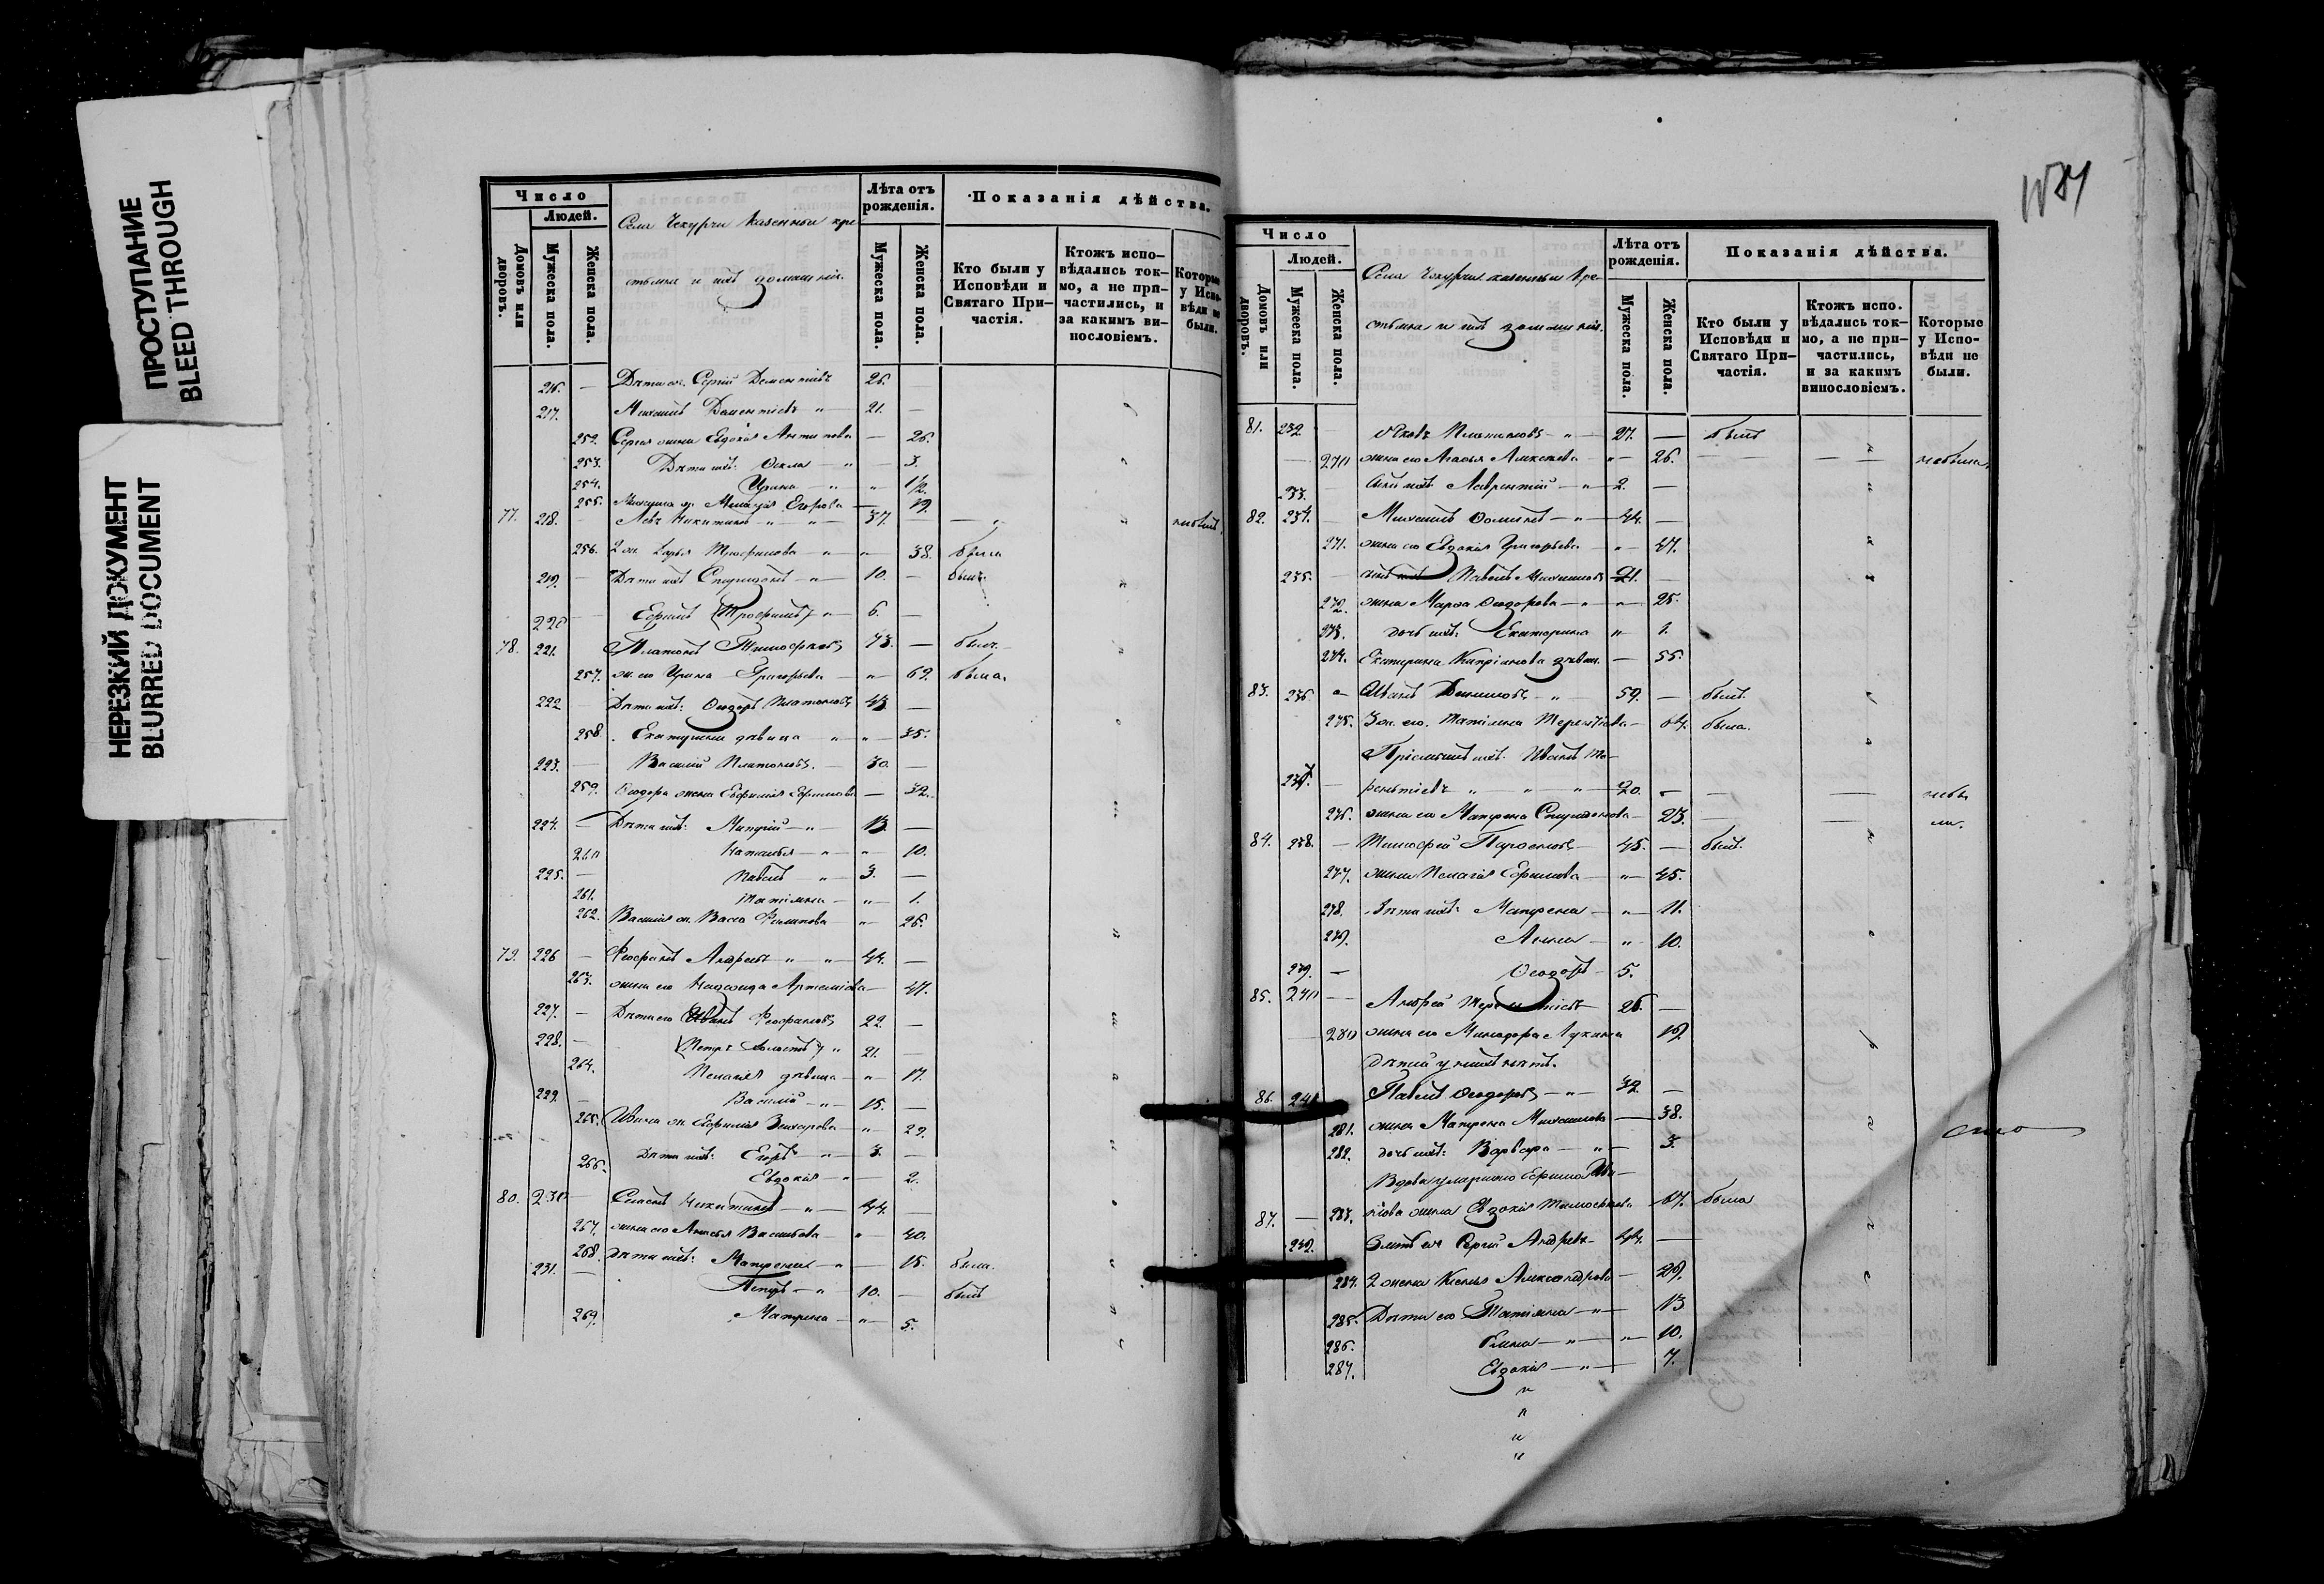 ПРОСТУПАНИЕ
BLEED THROUGH
НЕРЕЗКИЙ ДОКУМЕНТ
BLURRED DOCUMENT
Число
Людей.
Домовъ или дворовъ.
Мужеска пола.
Женска пола.
Села Чекурчи казенныи кре-
стьяна и ихъ домашнія.
Лѣта отъ рожденія.
Мужеска пола.
Женска пола.
Показанія дѣйства.
Кто были у Исповѣди и Святаго При-частія.
Ктожъ испо-вѣдались ток-мо, а не при-частились, и за какимъ ви-нословіемъ.
Которые у Испо-вѣди не были.
216. — Дѣти ег. Сергій Дементіевъ 26. —
217. Михаилъ Дементіевъ " — 21. —
252. Сергея жена Евдокія Антипова — 26.
253. Дѣти ихъ: Фекла — " — 3.
254. Ирина — " — " 1½.
255. Михаила ж. Егорова — 19.
77. 218. — Левъ Никитинъ " — " 37. — небылъ
256. 2 ж. Дарья Трофимова — " — " — 38. была
219. — Дѣти ихъ Спиридонъ — " — 10. — былъ.
220 — Трофимъ — " — 6. —
78. 221. Платонъ Тимофеевъ 73. — былъ.
257. ж. его Ирина Григорьева — " — 69. была.
222 — Дѣти ихъ: Ѳеодоръ Платоновъ 43 —
258. Екатерина дѣвица — " — " — 35.
223. — Василій Платоновъ. — 30. —
259. Ѳеодора жена Евфимія Ефимова — 32.
224. — Дѣти ихъ: — " — 13. —
260 Наталья — " — " — 10.
225. — Павелъ — " — 3. —
261. Татіяна — " — 1.
262. Василія ж. Васса Филипова — " — 26.
79. 226 — Феофанъ Андреевъ " — " — 44. —
263. жена его Надежда Артеміева — 47.
227. — Дѣти его Иванъ Феофановъ 22. —
228. — Петръ " 21. —
264. Пелагія дѣвица — " — 17.
229. — Василій — " — 15. —
265. Ивана ж. Евфимія Захарова — " — 29.
Дѣти ихъ: Егоръ — " — 3. —
266. Евдокія — " — 2.
80. 230 — Никитинъ — " — 44. —
267. жена его Васильева — " — 40.
268. Дѣти ихъ: Матрена — " — 15. была.
231. — Петръ — " — 10. — былъ
269. Матрена — " — 5.
Число
Людей.
Домовъ или дворовъ.
Мужеска пола.
Женска пола.
Села Чекурчи казенныи кре-
стьяна и ихъ домашнія.
Лѣта отъ рожденія.
Мужеска пола.
Женска пола.
Показанія дѣйства.
Кто были у Исповѣди и Святаго При-частія.
Ктожъ испо-вѣдались ток-мо, а не при-частились, и за какимъ винословіемъ.
Которые у Испо-вѣди не были.
81. 232 — Яковъ Платоновъ — " — 27. — былъ
270 жена его Агафья Алексеева — " — 26. — небыла
233. сынъ ихъ Лаврентій — " — 2. —
82. 234. — Михаилъ Фоминъ — " — 44. —
271. жена его Евдокія Григорьева — " — 47.
235. — сынъ ихъ Павелъ Михаиловъ 21. —
272. жена Марѳа Ѳеодорова — " — " — 25.
273. дочь ихъ: Екатерина " — 1.
274. Екатерина Кипріанова — 55.
83. 236 — Иванъ Даниловъ — " — 59. — былъ.
275. 3 ж. его. Татіяна Терентіева — 64. была.
Пріемышъ ихъ: Иванъ Те-
237. — рентіевъ " — " — " — 20. — — — небы
276. жена его Матрена Спиридонова — 23. — — ли.
84. 238. — Тимофей Парфеновъ — 45. — былъ.
277. жена Пелагія Ефимова — " — 45.
278. Дѣти ихъ: Матрена — " — 11.
279. Анна — " — 10.
239. — Ѳеодоръ — 5.
85. 240 — Андрей Терентіевъ 26. —
280 жена его Минодора Лукина 19.
дѣтей у нихъ нѣтъ.
86. 241 Павелъ Ѳеодоровъ — " — 32 —
281. жена Матрена Михаилова — 38.
282. дочь ихъ: Варвара — " — 3.
Вдова умершаго Ефима Ива-
87. — 283. нова жена Евдокія Тимофеева 67. была
242. Зять ея Сергій Андреевъ — 44. —
284. 2 жена Ксенія Александрова — 29.
285. Дѣти его Татіяна — " — 13
286. — " — " — 10.
287. Евдокія — " — 7.